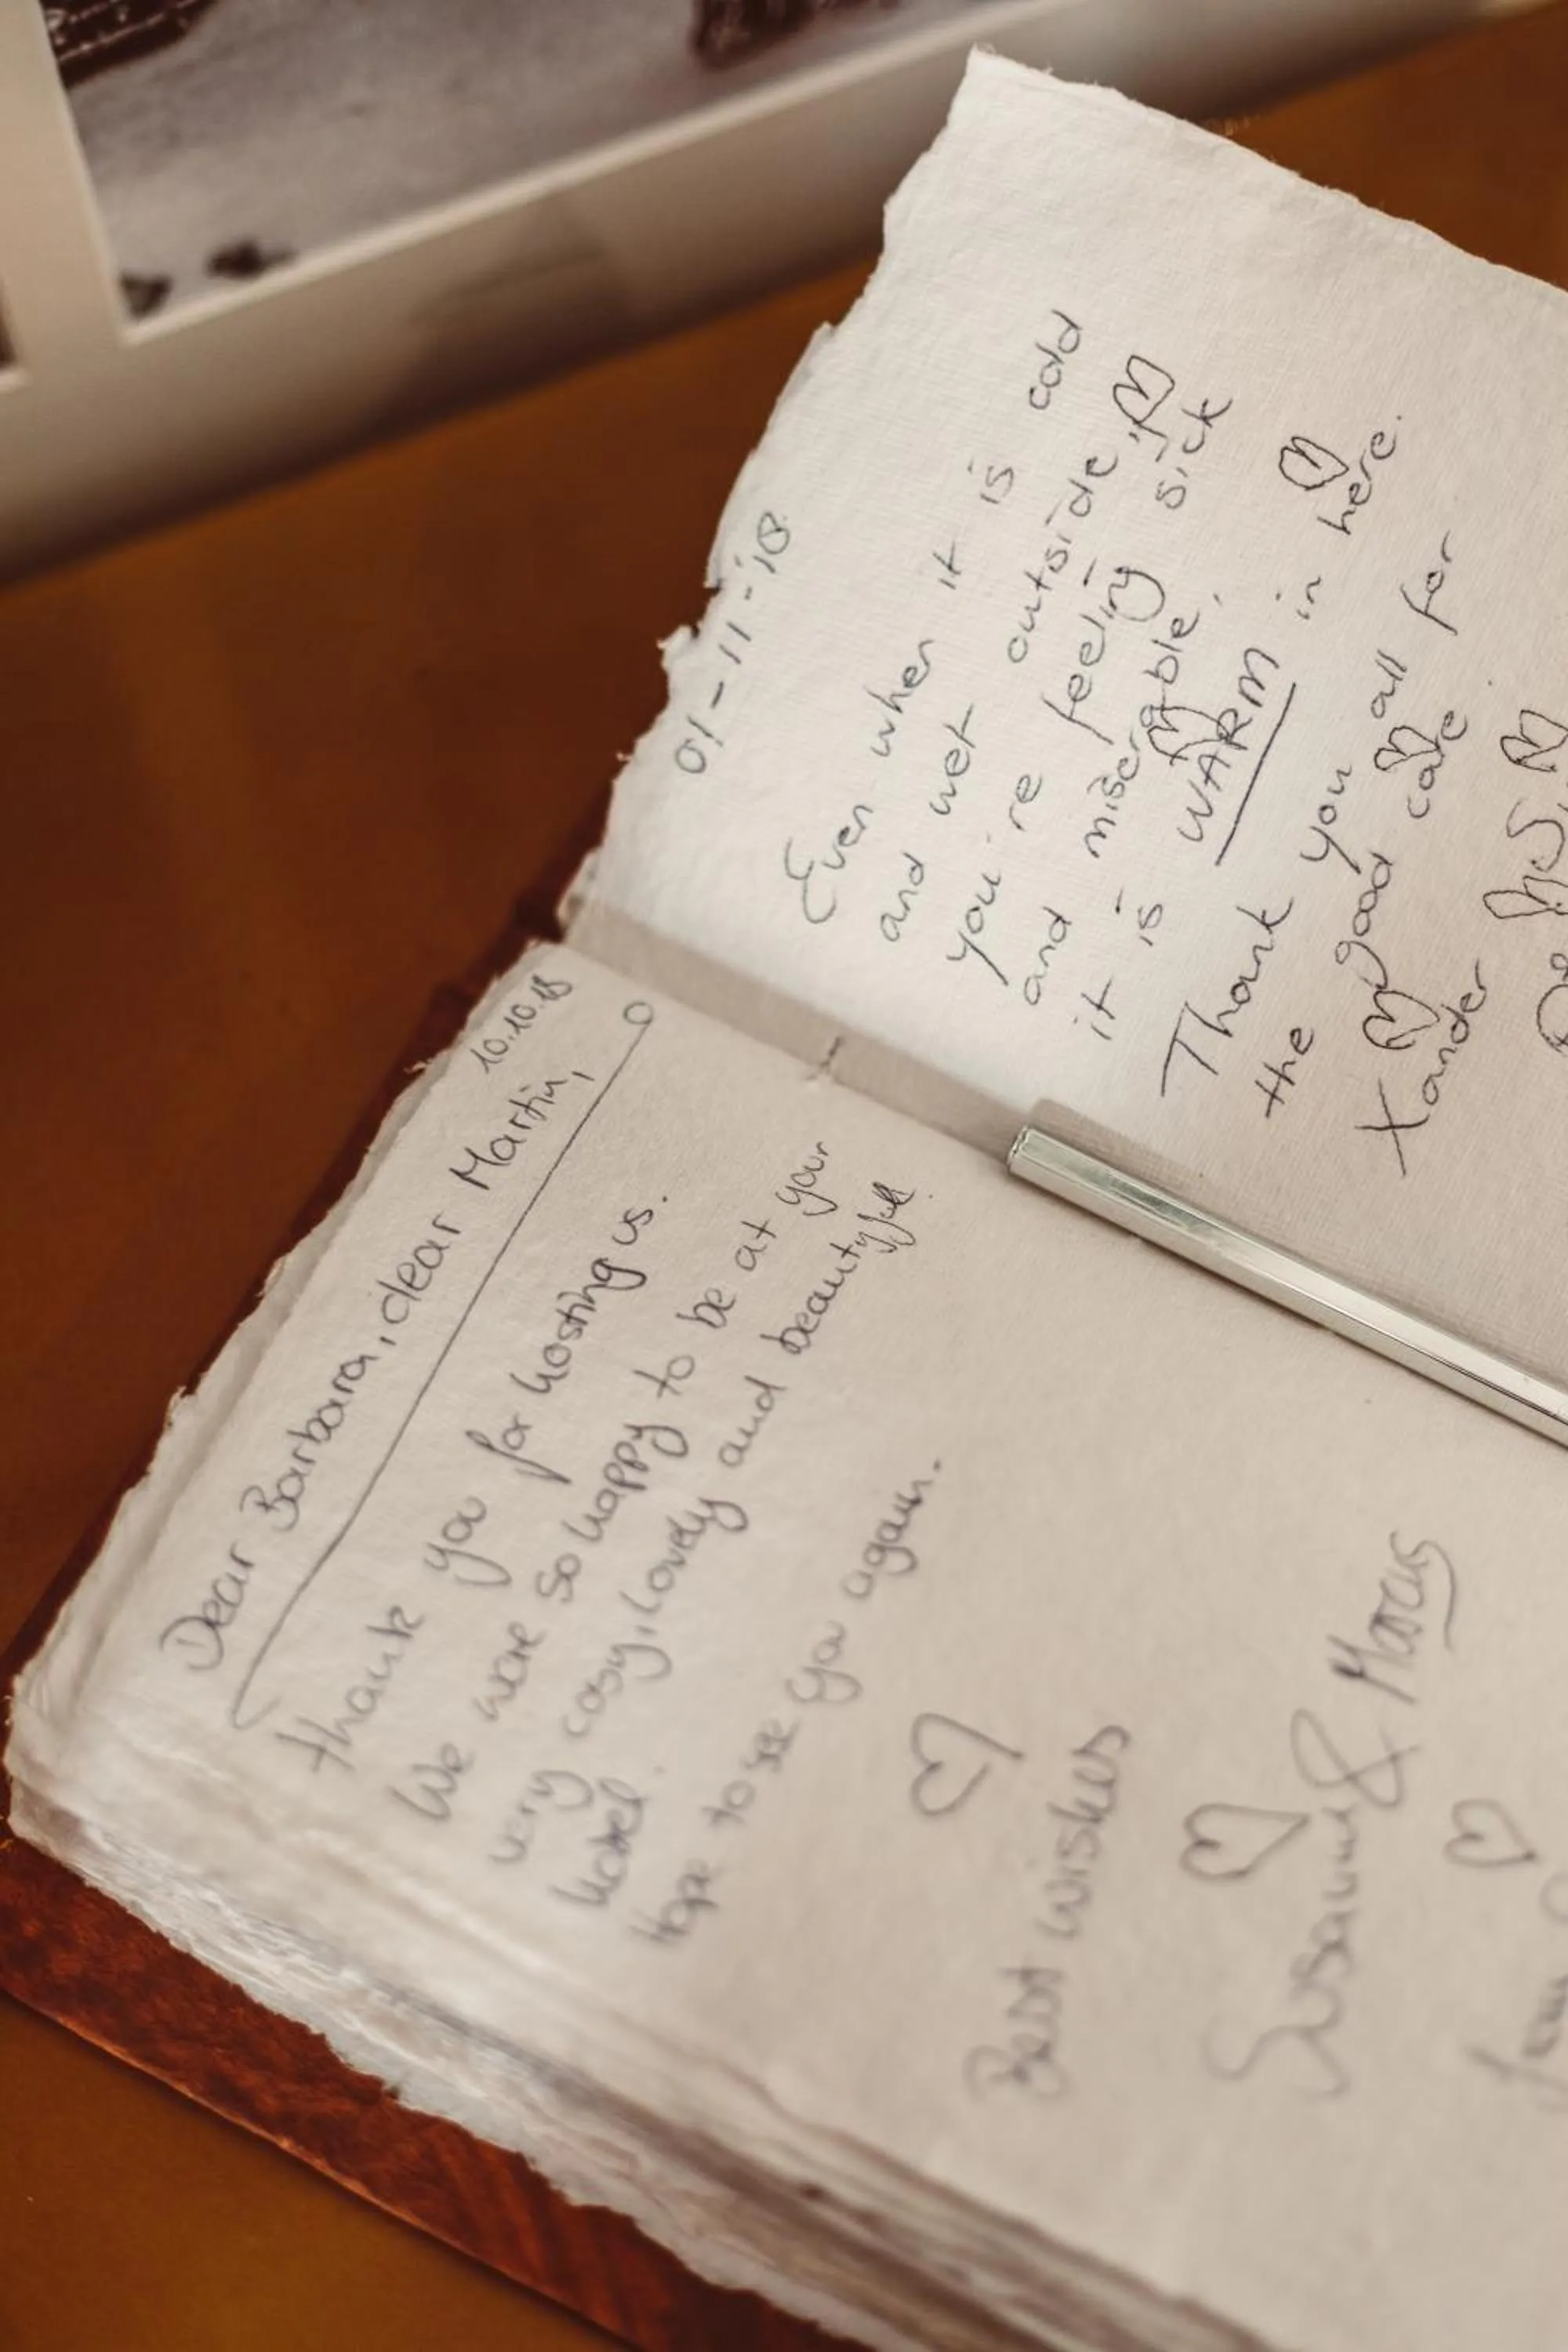 10.10.18
Dear Barbara, dear Martin,
thank you for hosting us.
We were so happy to be at your
very cosy, lovely and beautyfull
hotel.
Hope to see you again.
Best wishes
Susanne & Marcus
01-11-'18
Even when it is cold
and wet outside,
you're feeling sick
and miserable,
it is WARM in here.
Thank you all for
the good care
Xander